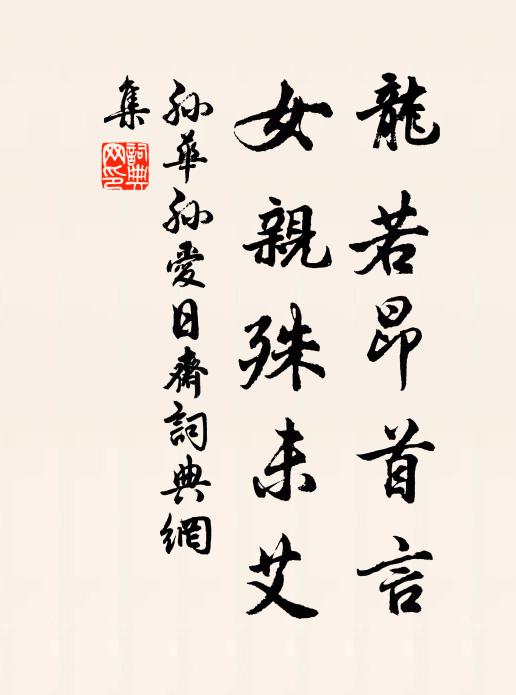 龍若昂首言
女親殊未艾
孫華孫愛日齋詞典網
集
詞典网印